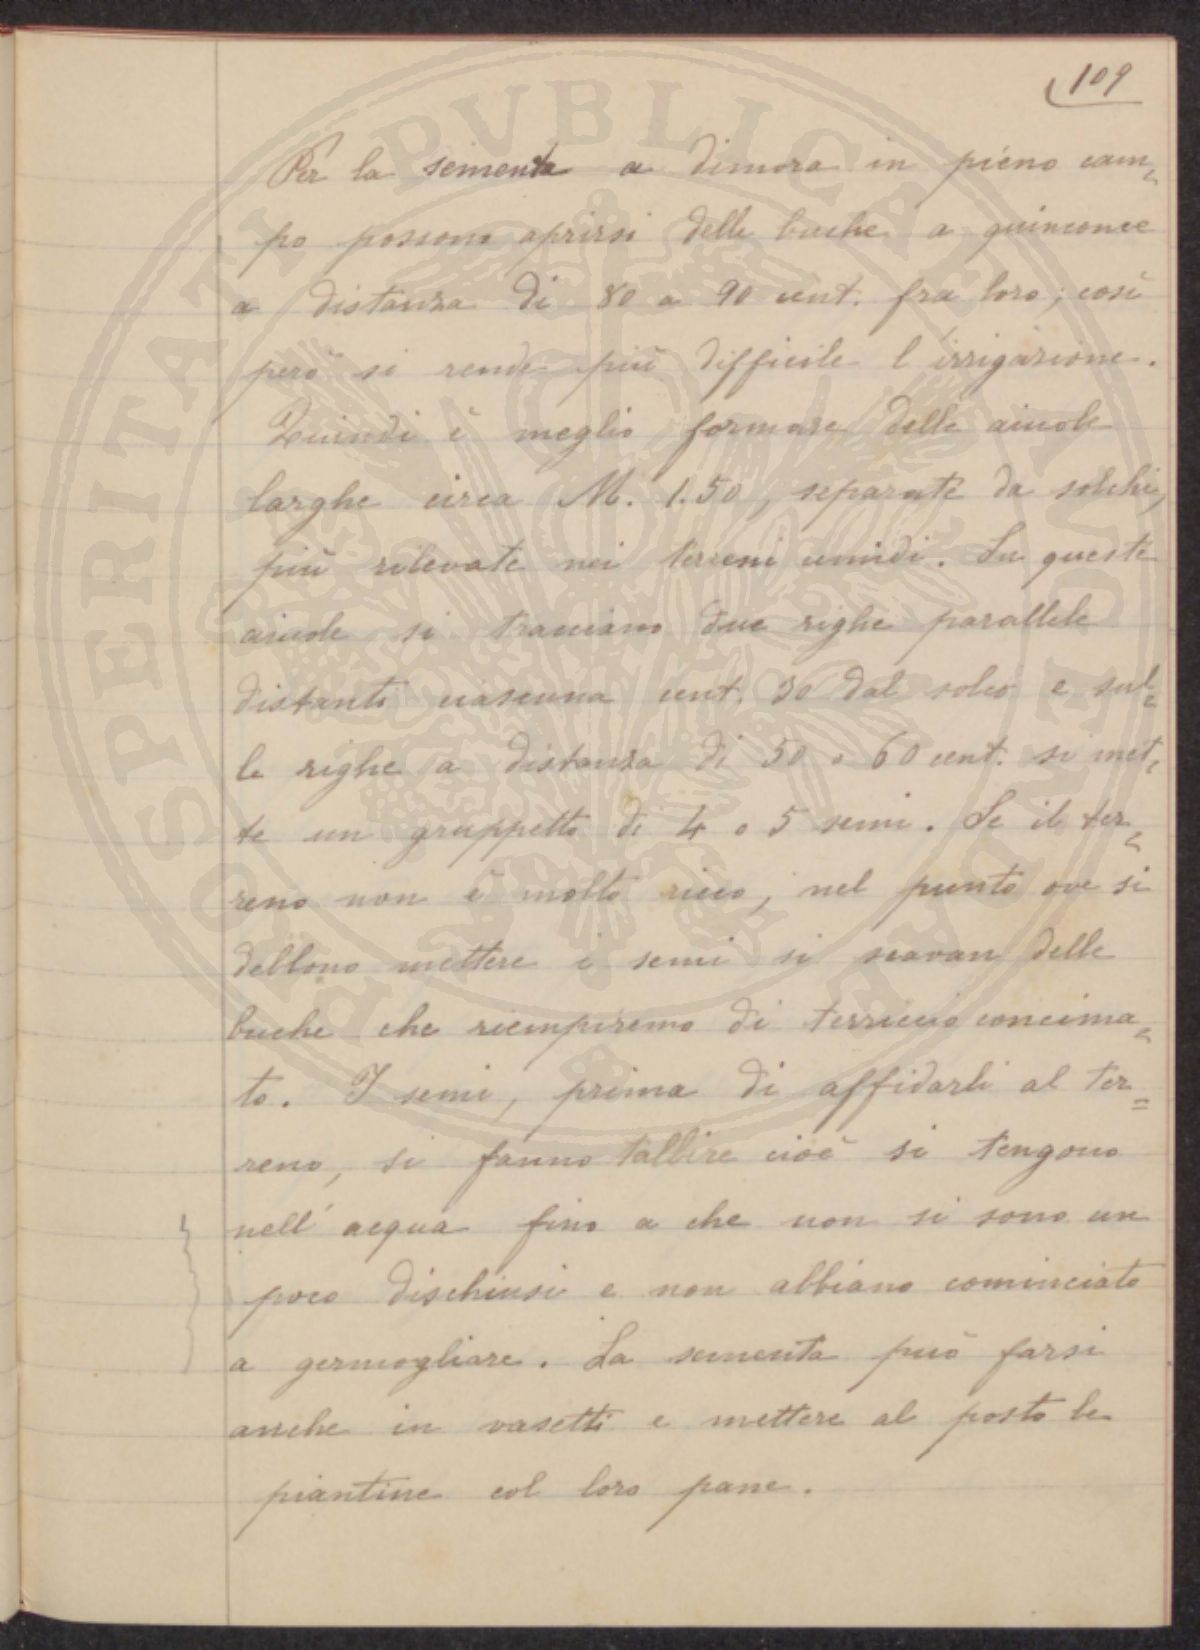 109
Per la sementa a dimora in pieno cam=
po possono aprirsi delle buche a quinconce
a distanza di 80 a 90 cent. fra loro; così
però si rende più difficile l'irrigazione.
Quindi è meglio formare delle aiuole
larghe circa M. 1.50, separate da solchi,
più rilevate nei terreni umidi. Su queste
aiuole si tracciano due righe parallele
distanti ciascuna cent. 30 dal solco e sul=
le righe a distanza di 50 o 60 cent. si met=
te un gruppetto di 4 o 5 semi. Se il ter=
reno non è molto ricco, nel punto ove si
debbono mettere i semi si scavan delle
buche che riempiremo di terriccio concima=
to. I semi, prima di affidarli al ter=
reno, si fanno tallire cioè si tengono
nell'acqua fino a che non si sono un
poco dischiusi e non abbiano cominciato
a germogliare. La sementa può farsi
anche in vasetti e mettere al posto le
piantine col loro pane.
PROSPERITATI PVBLICAE